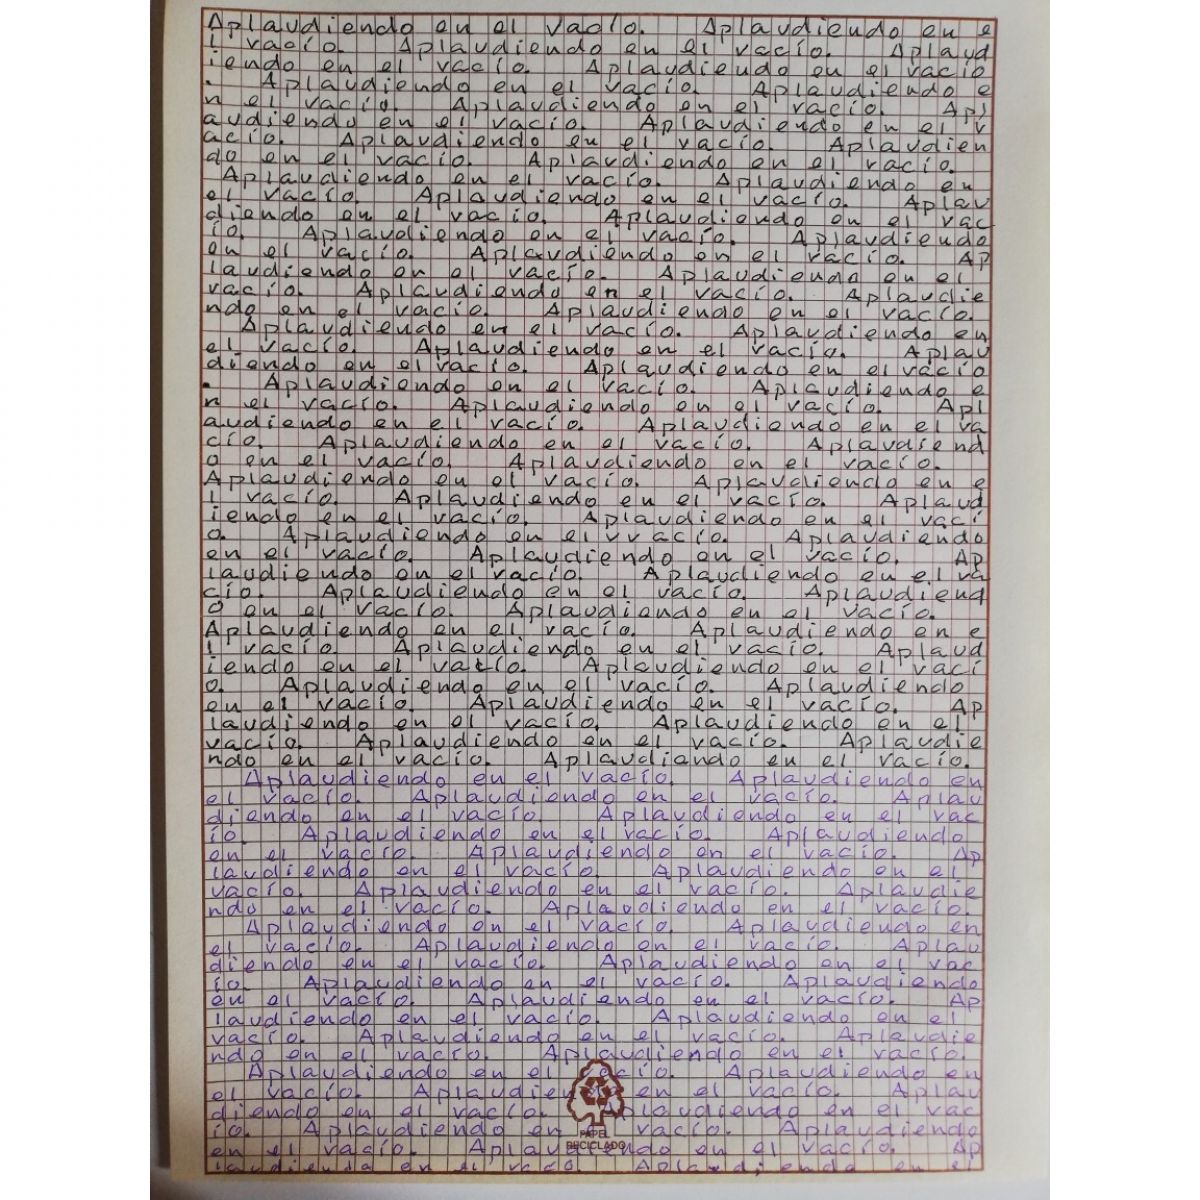 Aplaudiendo en el vacío. Aplaudiendo en e
l vacío. Aplaudiendo en el vacío. Aplaud
iendo en el vacío. Aplaudiendo en el vacío
. Aplaudiendo en el vacío. Aplaudiendo e
n el vacío. Aplaudiendo en el vacío. Apl
audiendo en el vacío. Aplaudiendo en el v
acío. Aplaudiendo en el vacío. Aplaudien
do en el vacío. Aplaudiendo en el vacío.
Aplaudiendo en el vacío. Aplaudiendo en
el vacío. Aplaudiendo en el vacío. Aplau
diendo en el vacío. Aplaudiendo en el vac
ío. Aplaudiendo en el vacío. Aplaudiendo
en el vacío. Aplaudiendo en el vacío. Ap
laudiendo en el vacío. Aplaudiendo en el
vacío. Aplaudiendo en el vacío. Aplaudie
ndo en el vacío. Aplaudiendo en el vacío.
Aplaudiendo en el vacío. Aplaudiendo en
el vacío. Aplaudiendo en el vacío. Aplau
diendo en el vacío. Aplaudiendo en el vacío
. Aplaudiendo en el vacío. Aplaudiendo e
n el vacío. Aplaudiendo en el vacío. Apl
audiendo en el vacío. Aplaudiendo en el va
cío. Aplaudiendo en el vacío. Aplaudiend
o en el vacío. Aplaudiendo en el vacío.
Aplaudiendo en el vacío. Aplaudiendo en e
l vacío. Aplaudiendo en el vacío. Aplaud
iendo en el vacío. Aplaudiendo en el vací
o. Aplaudiendo en el vvacío. Aplaudiendo
en el vacío. Aplaudiendo en el vacío. Ap
laudiendo en el vacío. Aplaudiendo en el va
cío. Aplaudiendo en el vacío. Aplaudiend
o en el vacío. Aplaudiendo en el vacío.
Aplaudiendo en el vacío. Aplaudiendo en e
l vacío. Aplaudiendo en el vacío. Aplaud
iendo en el vacío. Aplaudiendo en el vací
o. Aplaudiendo en el vacío. Aplaudiendo
en el vacío. Aplaudiendo en el vacío. Ap
laudiendo en el vacío. Aplaudiendo en el
vacío. Aplaudiendo en el vacío. Aplaudie
ndo en el vacío. Aplaudiendo en el vacío.
Aplaudiendo en el vacío. Aplaudiendo en
el vacío. Aplaudiendo en el vacío. Aplau
diendo en el vacío. Aplaudiendo en el vac
ío. Aplaudiendo en el vacío. Aplaudiendo
en el vacío. Aplaudiendo en el vacío. Ap
laudiendo en el vacío. Aplaudiendo en el
vacío. Aplaudiendo en el vacío. Aplaudie
ndo en el vacío. Aplaudiendo en el vacío.
Aplaudiendo en el vacío. Aplaudiendo en
el vacío. Aplaudiendo en el vacío. Aplau
diendo en el vacío. Aplaudiendo en el vac
ío. Aplaudiendo en el vacío. Aplaudiendo
en el vacío. Aplaudiendo en el vacío. Ap
laudiendo en el vacío. Aplaudiendo en el
vacío. Aplaudiendo en el vacío. Aplaudie
ndo en el vacío. Aplaudiendo en el vacío.
Aplaudiendo en el vacío. Aplaudiendo en
el vacío. Aplaudiendo en el vacío. Aplau
diendo en el vacío. Aplaudiendo en el vac
ío. Aplaudiendo en vacío. Aplaudiendo
en el vacío. Aplaudiendo en el vacío. Ap
laudiendo en el vacío. Aplaudiendo en el
PAPEL
RECICLADO